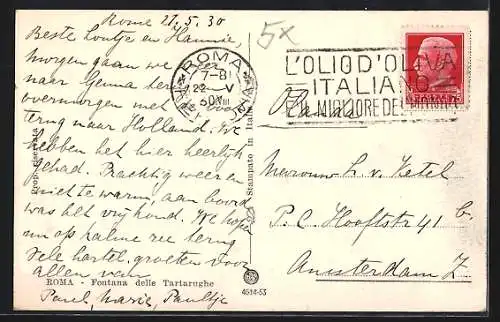 Rome 21.5.30
Beste Loutje en Hannie
morgen gaan we
naar Genua en
overmorgen met boot
terug naar Holland. We
hebben het hier heerlijk
gehad. Prachtig weer en
niet te warm, aan boord
was het vrij koud. We hopen
nu op kalme zee terug
Vele hartel. groeten voor
allen van
ROMA - Fontana delle Tartarughe
Paul, Marie, Paultje
Stampato in Italia
4514-53
5x
ROMA
7-8
22 V
30 VIII
L'OLIO D'OLIVA
ITALIANO
È IL MIGLIORE DEL
Mevrouw L. v. Ketel
P.C. Hooftstr 41 b.
Amsterdam Z.